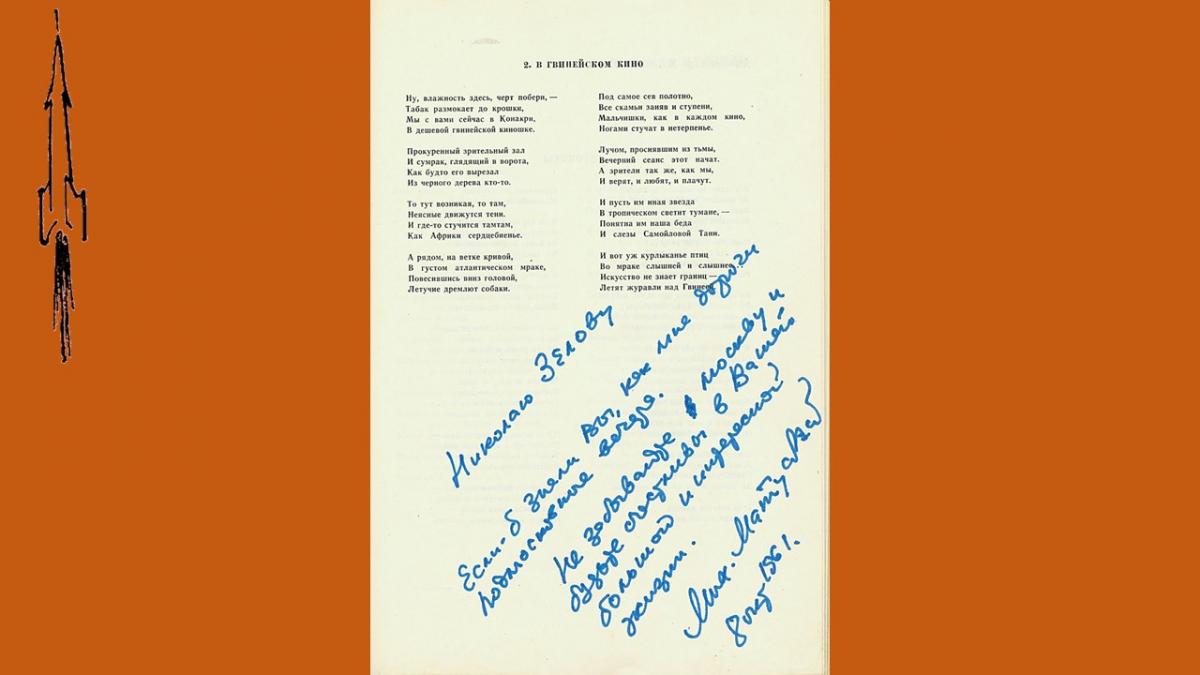 2. В ГВИНЕЙСКОМ КИНО
Ну, влажность здесь, черт побери, —
Табак размокает до крошки,
Мы с вами сейчас в Конакри,
В дешевой гвинейской киношке.
Прокуренный зрительный зал
И сумрак, глядящий в ворота,
Как будто его вырезал
Из черного дерева кто-то.
То тут возникая, то там,
Неясные движутся тени.
И где-то стучится тамтам,
Как Африки сердцебиенье.
А рядом, на ветке кривой,
В густом атлантическом мраке,
Повесившись вниз головой,
Летучие дремлют собаки.
Под самое сев полотно,
Все скамьи заняв и ступени,
Мальчишки, как в каждом кино,
Ногами стучат в нетерпенье.
Лучом, просиявшим из тьмы,
Вечерний сеанс этот начат.
А зрители так же, как мы,
И верят, и любят, и плачут.
И пусть им иная звезда
В тропическом светит тумане, —
Понятна им наша беда
И слезы Самойловой Тани.
И вот уж курлыканье птиц
Во мраке слышней и слышнее,
Искусство не знает границ —
Летят журавли над Гвинеей.
Николаю Зелову
Если-б знали вы, как мне дороги
подмосковные вечера.
Не забывайте Москву и
будьте счастливы в Вашей
большой и интересной
жизни.
Мих. Матусовский
8 окт. 1961.